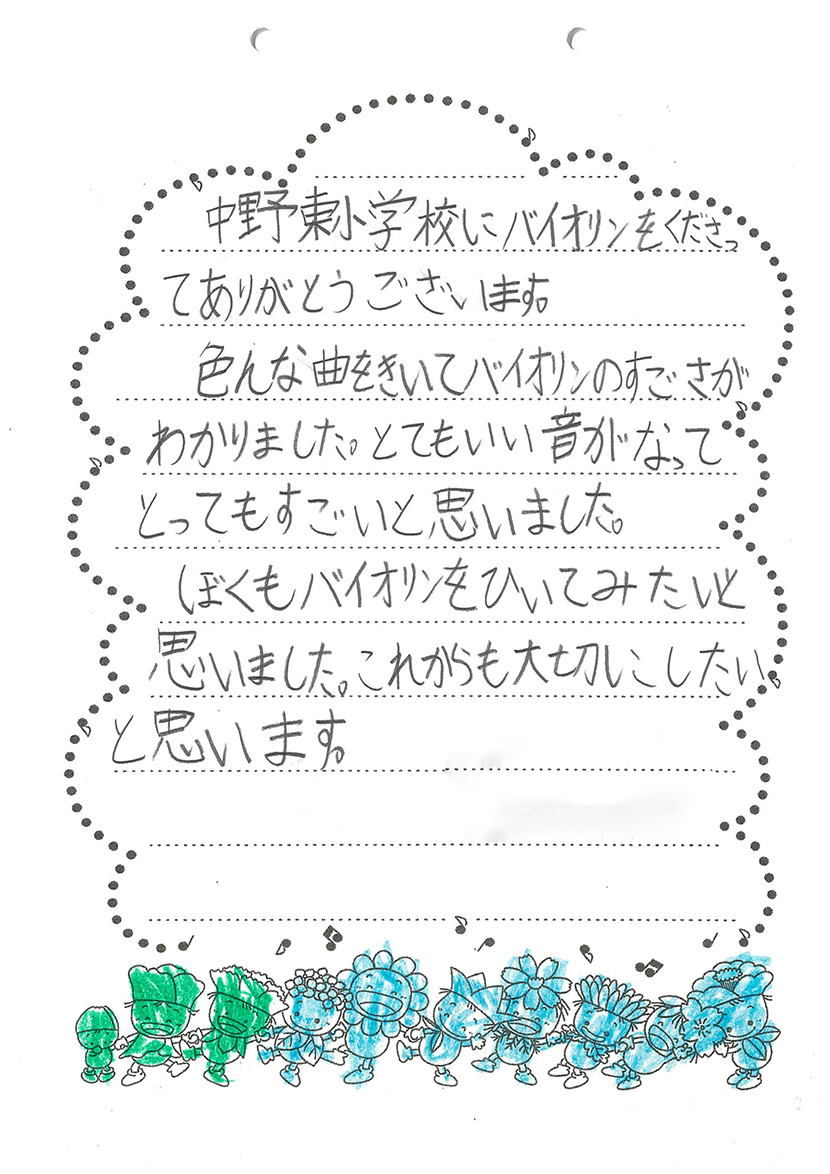 中野東小学校にバイオリンをくださっ
てありがとうございます。
色んな曲をきいてバイオリンのすごさが
わかりました。とてもいい音がなって
とってもすごいと思いました。
ぼくもバイオリンをひいてみたいと
思いました。これからも大切にしたい
と思います。